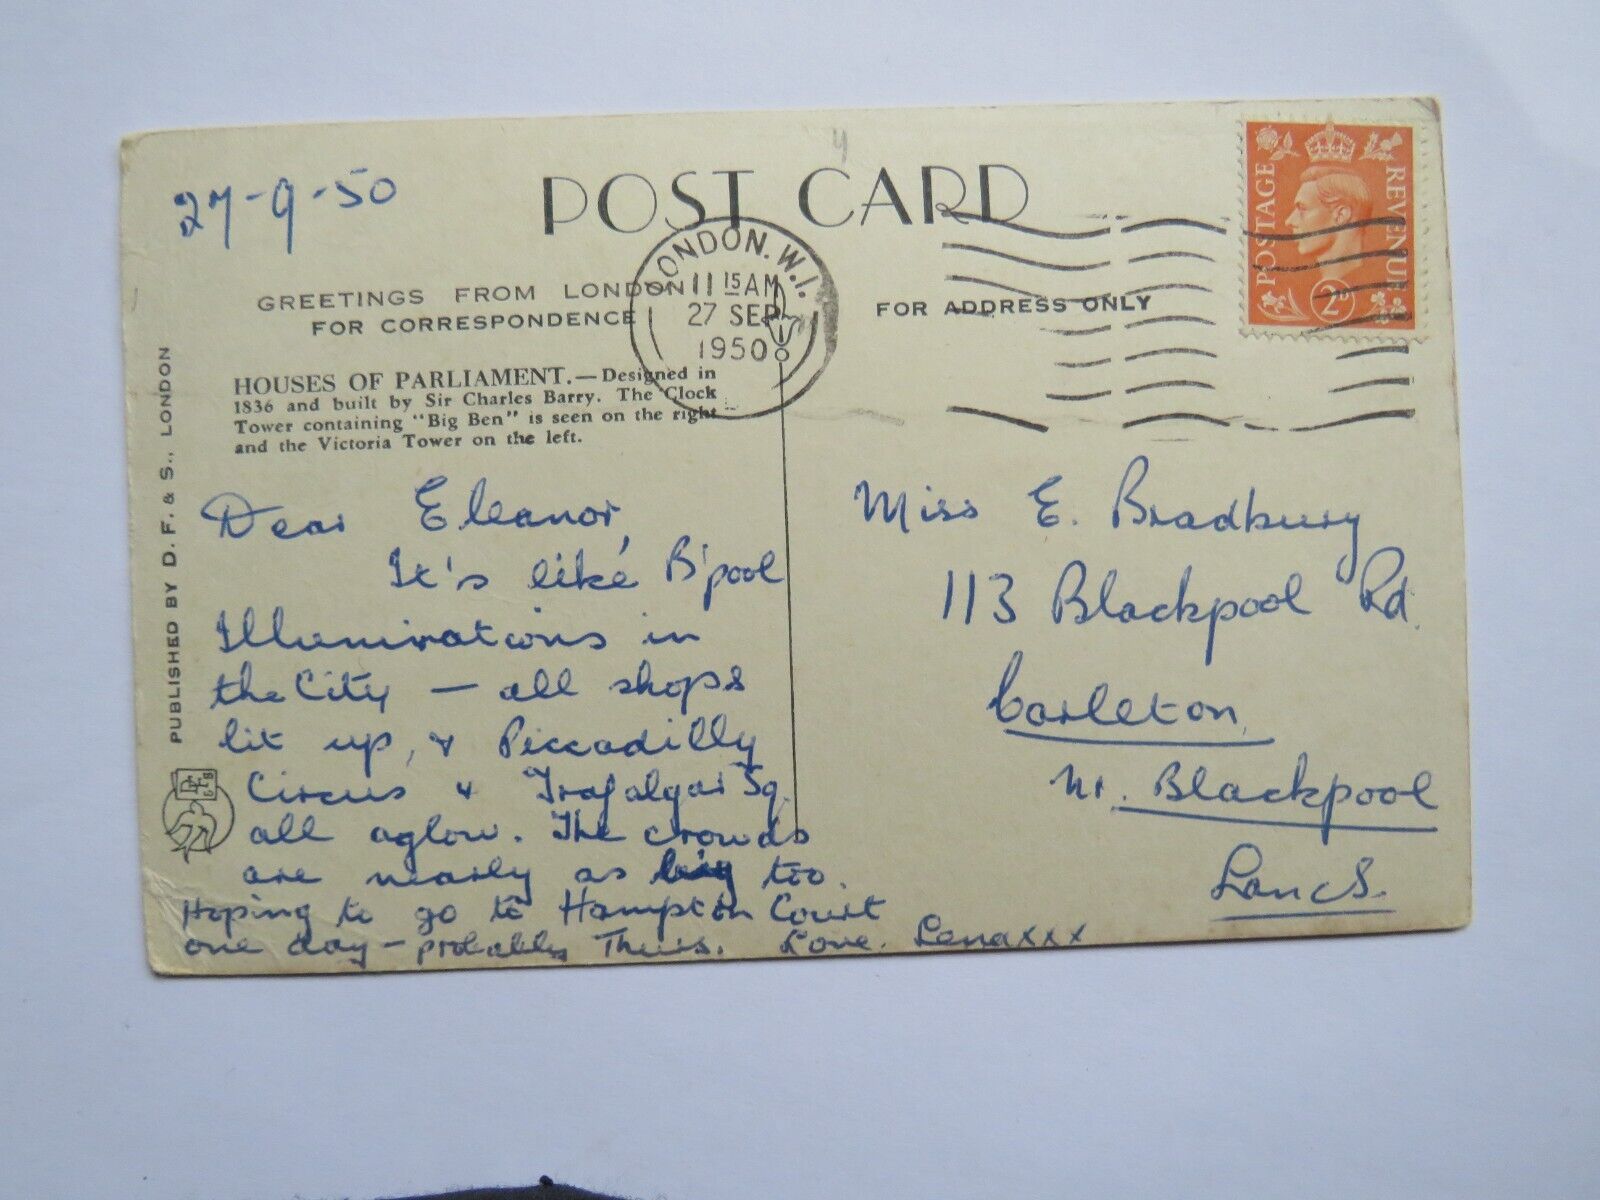 4
27-9-50
POST CARD
LONDON. W.1.
11 15 AM
27 SEP
1950
POSTAGE
REVENUE
2D
GREETINGS FROM LONDON
FOR CORRESPONDENCE
FOR ADDRESS ONLY
HOUSES OF PARLIAMENT.—Designed in
1836 and built by Sir Charles Barry. The Clock
Tower containing "Big Ben" is seen on the right
and the Victoria Tower on the left.
PUBLISHED BY D. F. & S., LONDON
Dear Eleanor,
It's like B'pool
Illuminations in
the City — all shops
lit up, & Piccadilly
Circus & Trafalgar Sq.
all aglow. The crowds
are nearly as big too.
Hoping to go to Hampton Court
one day – probably Thurs. Love. Lena xxx
Miss E. Bradbury
113 Blackpool Rd.
Carleton,
Nr. Blackpool
Lancs.